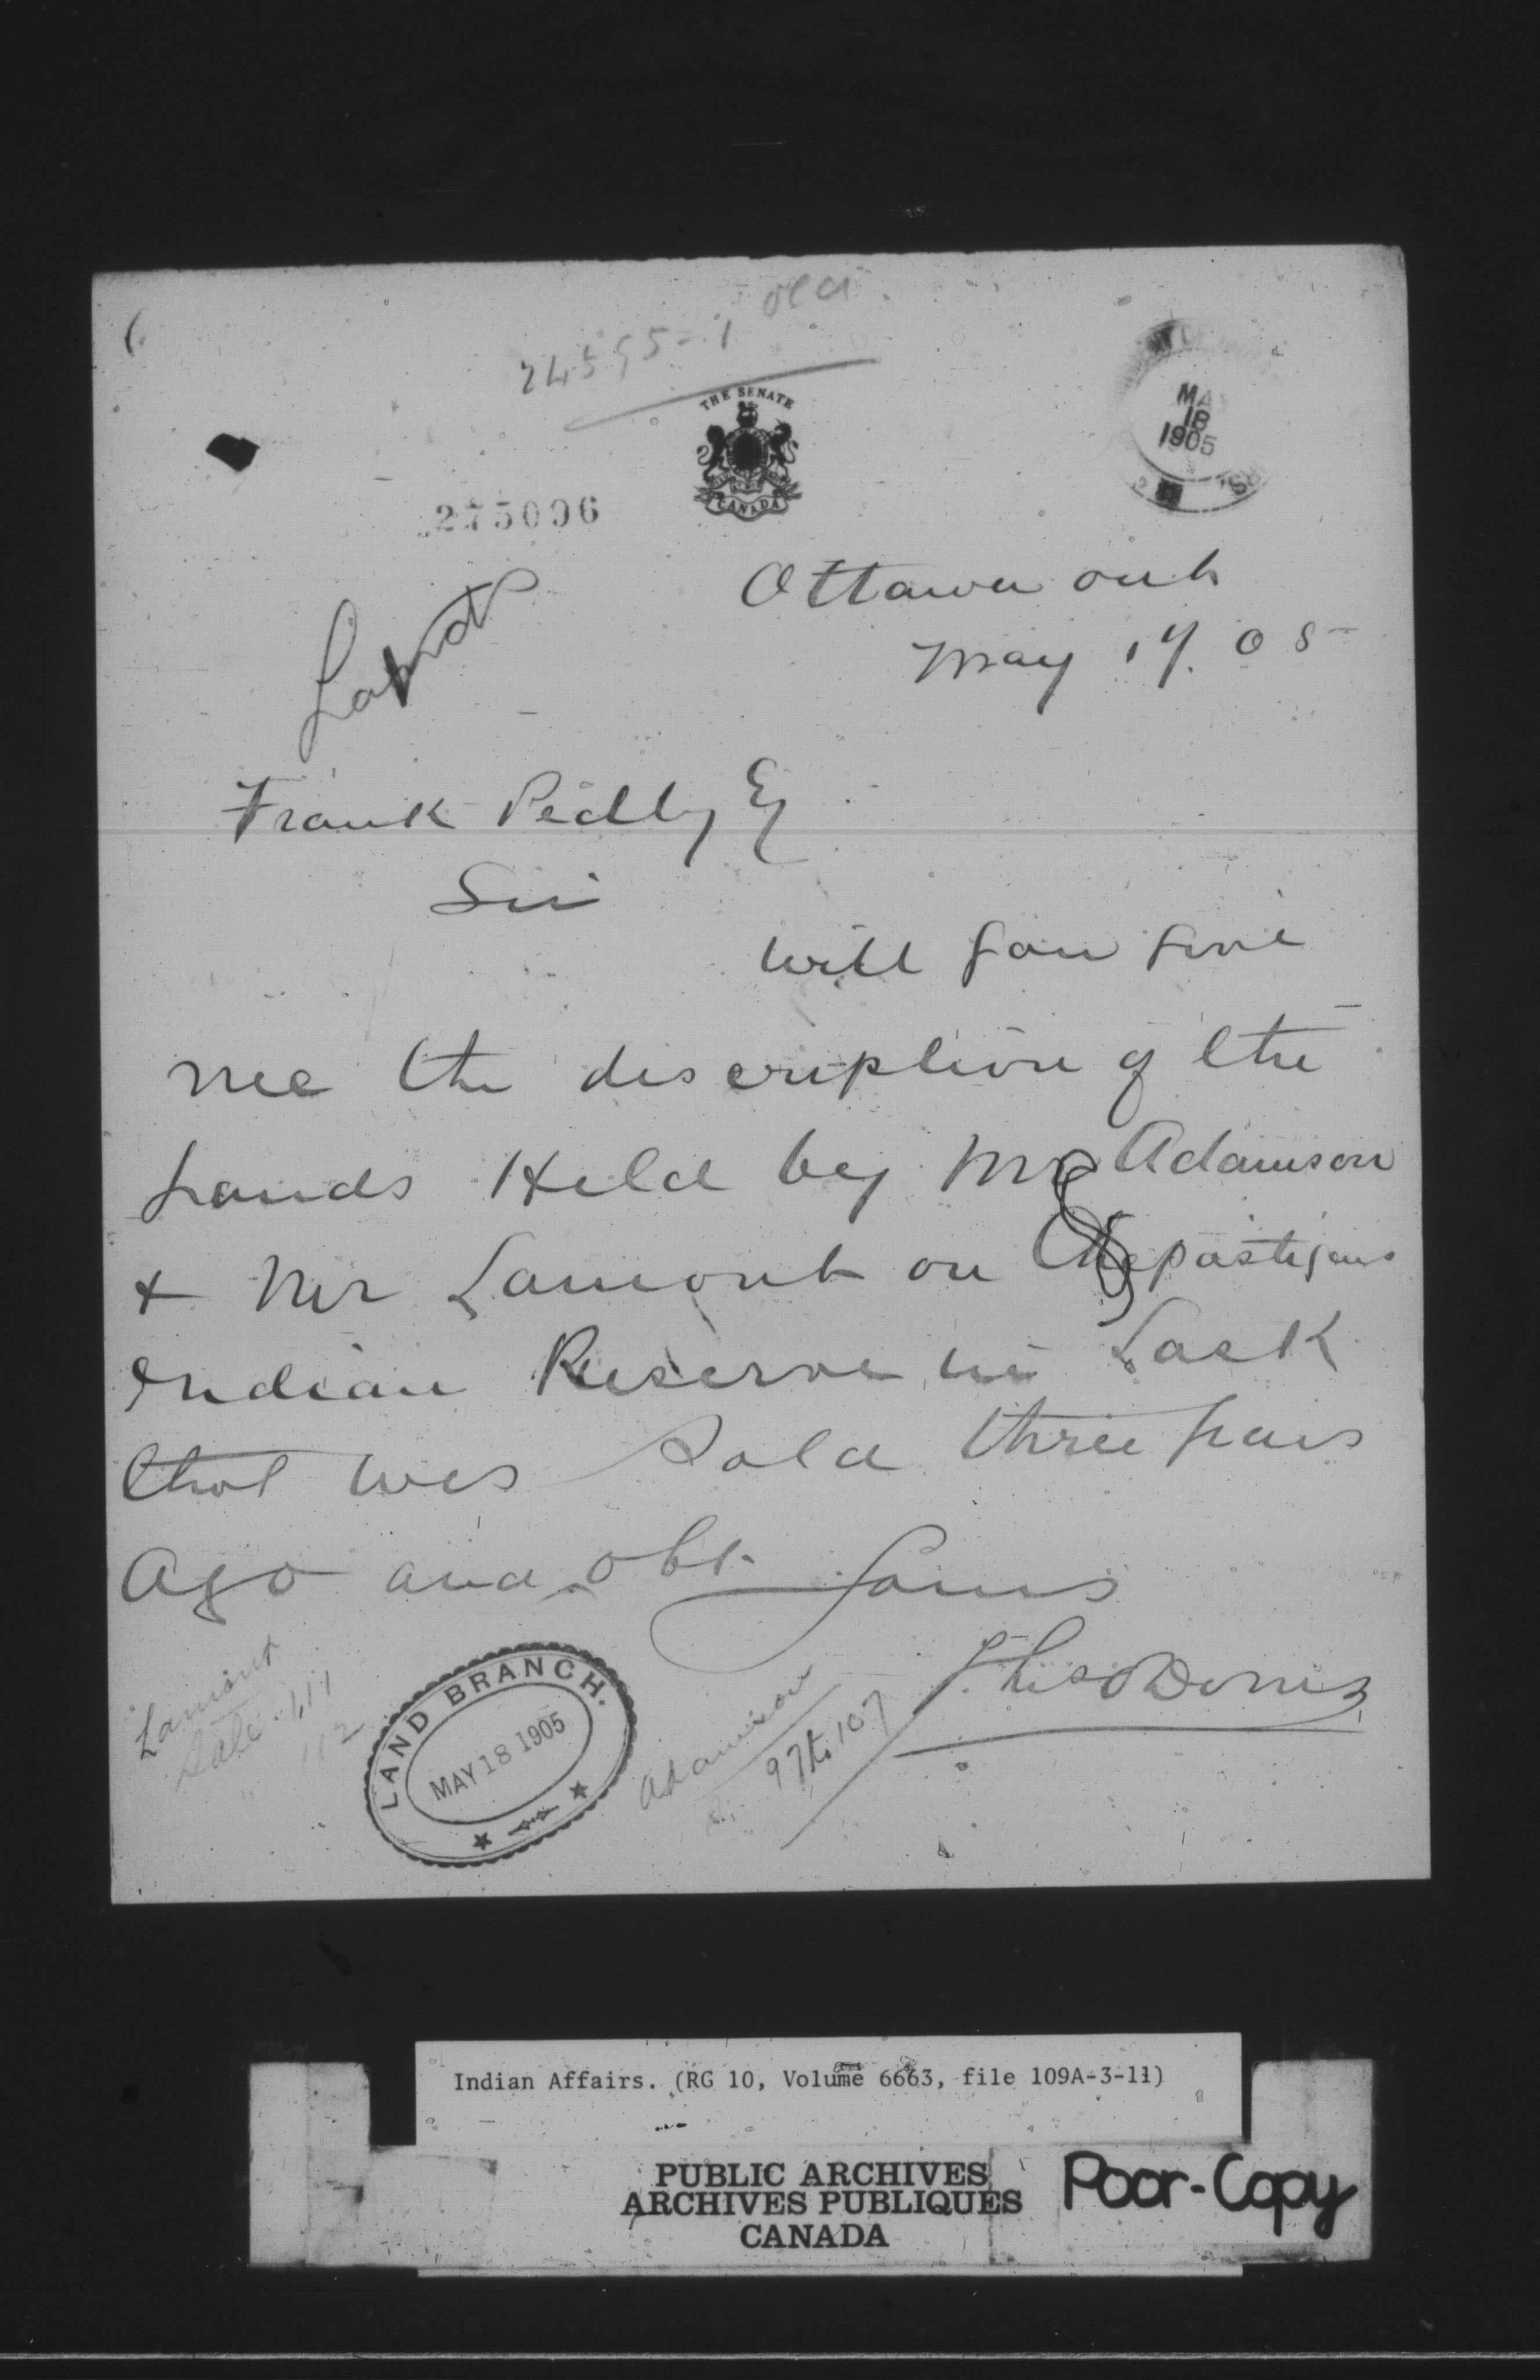 24595-1
THE SENATE
CANADA
MA
18
1905
275096
Ottawa ont
May 17. 05
Frank Pedly Eq
Sir
Will you give
me the discription of the
Lands Held by Mr Adamson
& Mr Lamont on
Indian Reserve in Sask
that was Sold three years
Ago and obl. yours
Lamont
Sale 111
" 112
LAND BRANCH.
MAY 18 1905
Adamson
97 to 107
Indian Affairs. (RG 10, Volume 6663, file 109A-3-11)
PUBLIC ARCHIVES
ARCHIVES PUBLIQUES
CANADA
Poor-Copy